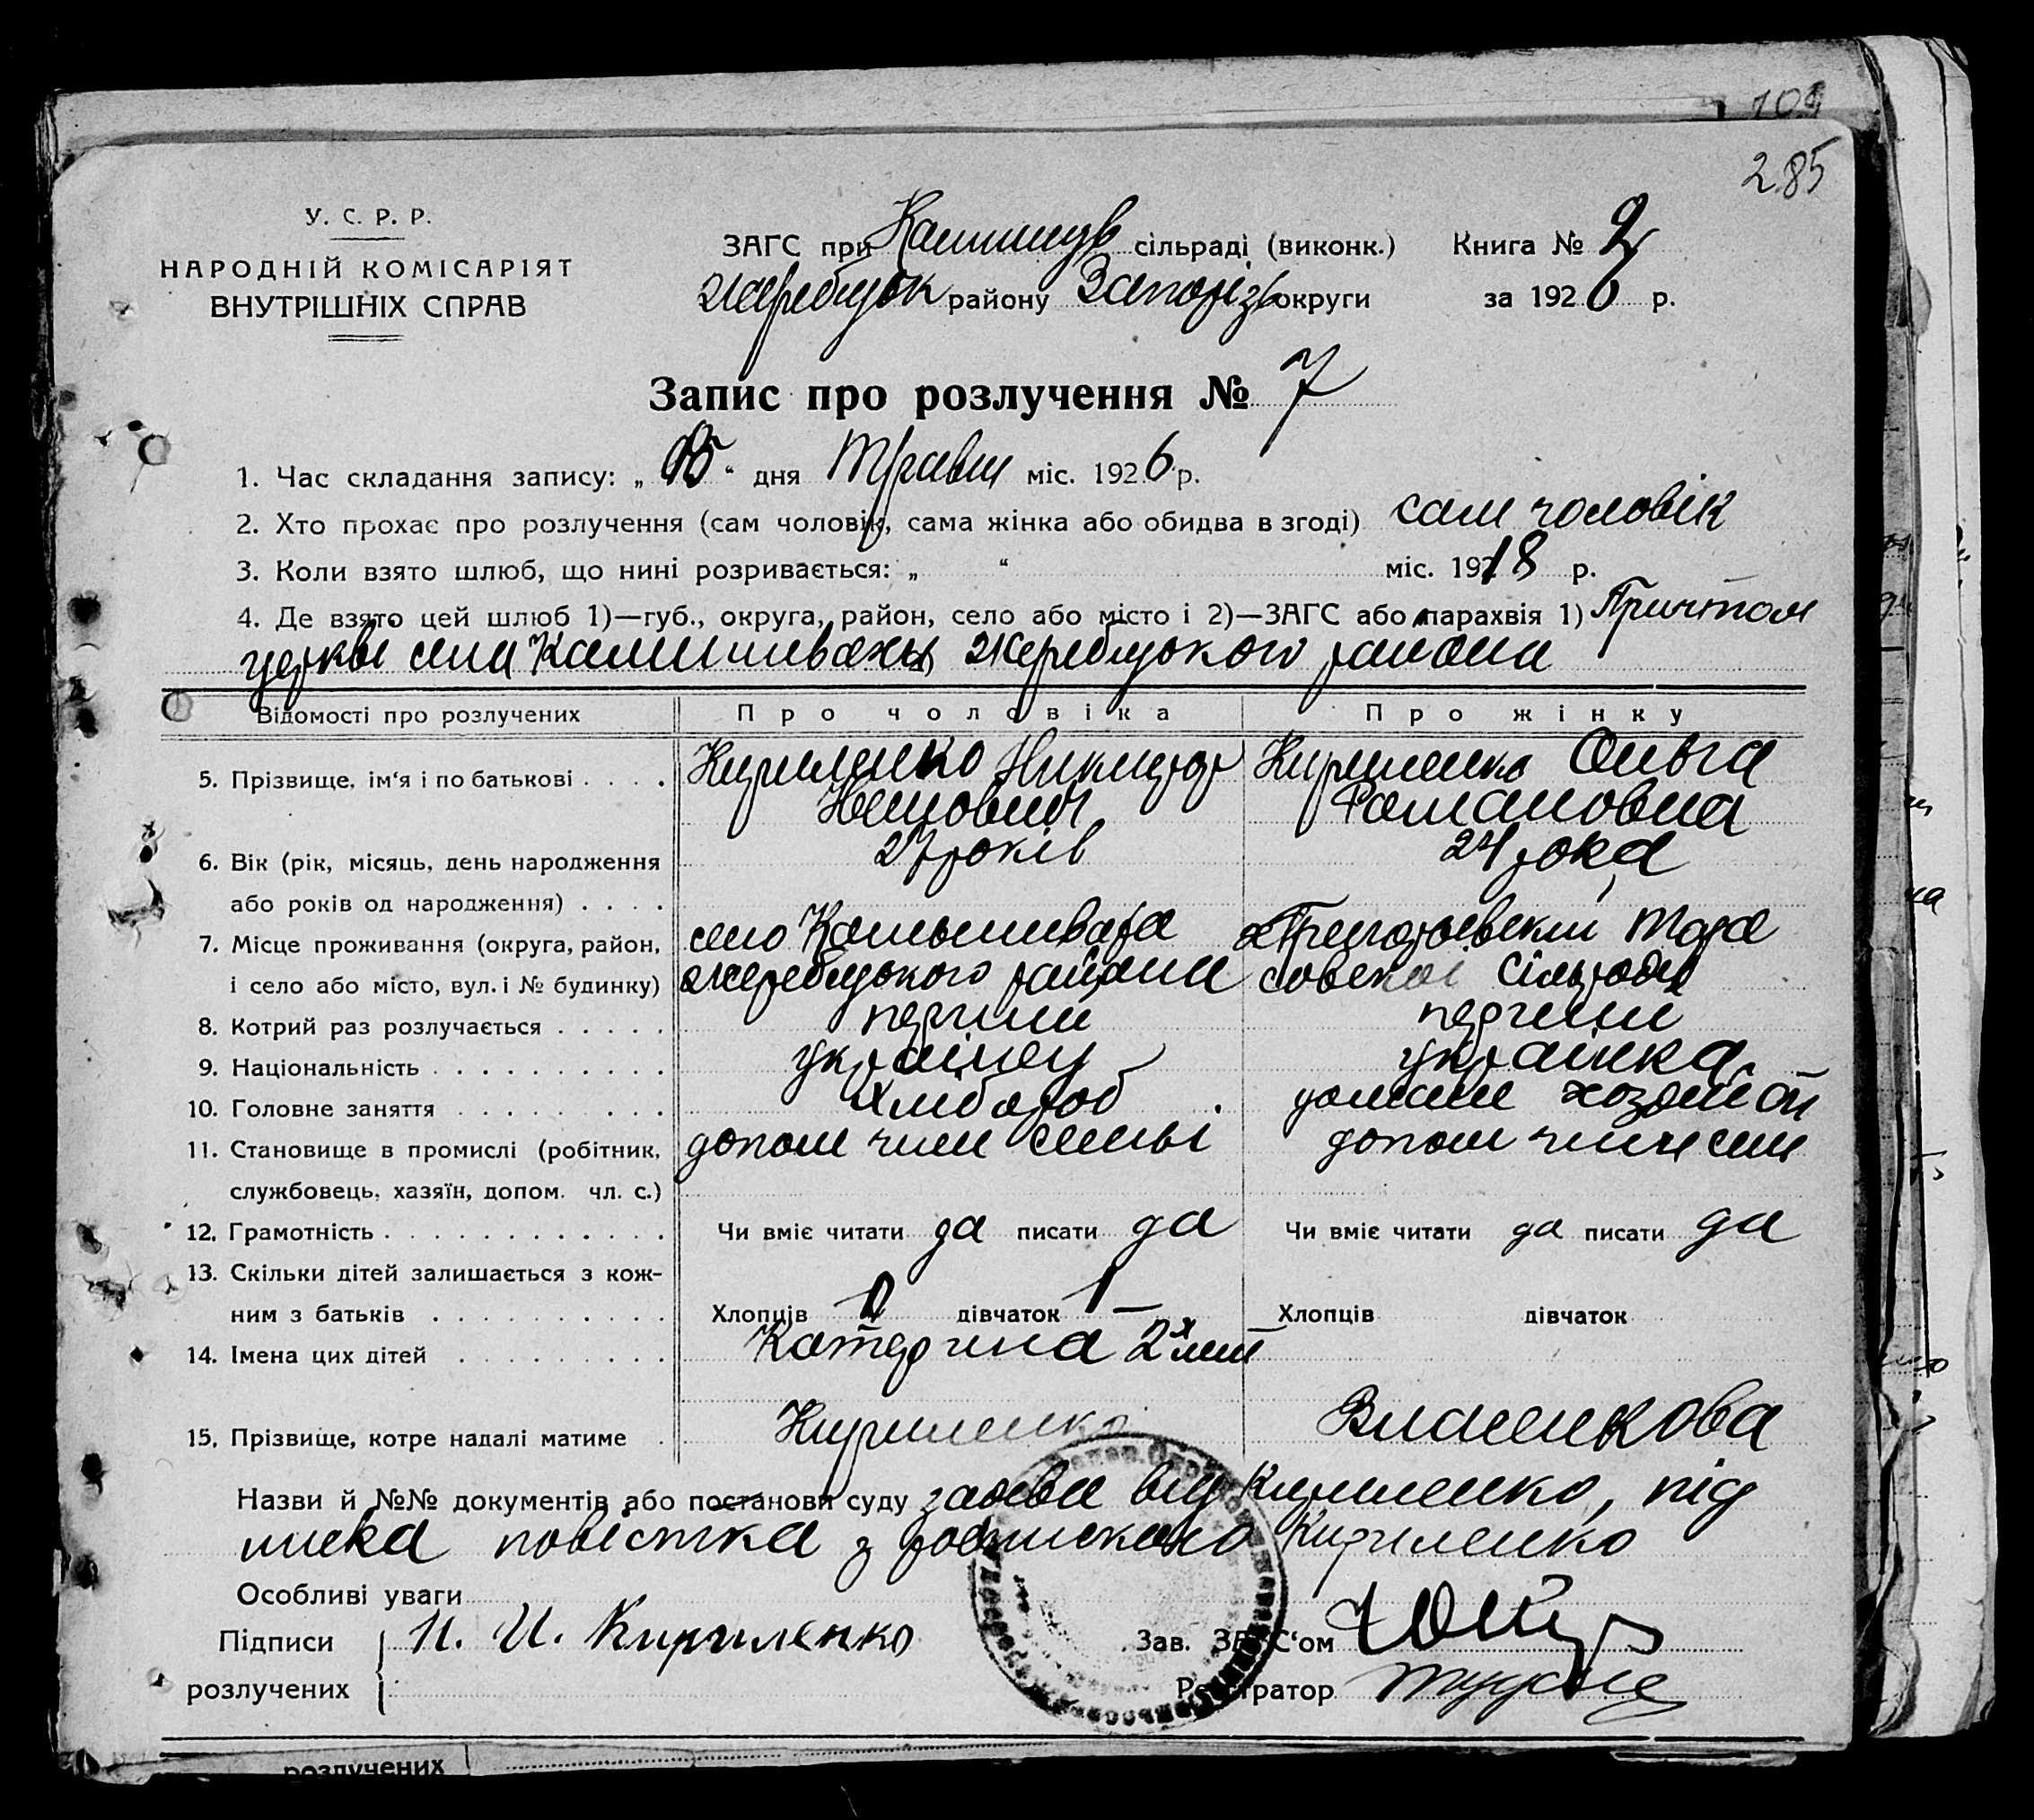 104
285
У. С. Р. Р.
НАРОДНІЙ КОМІСАРІЯТ
ВНУТРІШНІХ СПРАВ
ЗАГС при Камишув сільраді (виконк.) Книга № 2
Жеребцьк району Запоріз округи за 1926 р.
Запис про розлучення № 7
1. Час складання запису: „ “ дня Травня міс. 1926 р.
2. Хто прохає про розлучення (сам чоловік, сама жінка або обидва в згоді) сам чоловік
3. Коли взято шлюб, що нині розривається: „ “ міс. 1918 р.
4. Де взято цей шлюб 1)—губ., округа, район, село або місто і 2)—ЗАГС або парахвія 1) Причтом
церкві села Камишивахы Жеребцького района
Відомості про розлучених Про чоловіка Про жінку
5. Прізвище, ім‘я і по батькові . . . . Кириленко Никифор Кириленко Ольга
Романовна
6. Вік (рік, місяць, день народження 27 років 24 рока
або років од народження) . . . .
7. Місце проживання (округа, район, село Камышиваха
і село або місто, вул. і № будинку) жеребцького района совской сільради
8. Котрий раз розлучається . . . . . перший перший
9. Національність . . . . . . . . . . українец українка
10. Головне заняття . . . . . . . . . хлибороб
11. Становище в промислі (робітник, допом член семьі допом член сем
службовець, хазяїн, допом. чл. с.)
12. Грамотність . . . . . . . . . . . . . Чи вміє читати да писати да Чи вміє читати да писати да
13. Скільки дітей залишається з кож-
ним з батьків . . . . . . . . . . Хлопців 0 дівчаток 1 Хлопців дівчаток
14. Імена цих дітей . . . . . . . . . Катерина 2х лет
15. Прізвище, котре надалі матиме . Кириленко Власенкова
Назви й №№ документів або постанови суду заява від Кириленко, під
писка повістка з роспискою Кириленко
Особливі уваги
Підписи Н. И. Кириленко Зав. ЗАГС‘ом
розлучених Реєстратор
розлучених